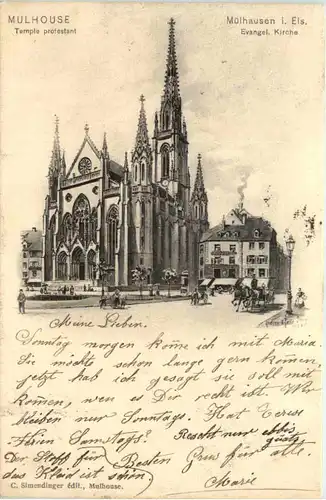 MULHOUSE
Temple protestant
Mülhausen i. Els.
Evangel. Kirche
Meine Lieben.
Sonntag morgen kome ich mit Maria.
Sie möchte schon lange gern komen,
jetzt hab ich gesagt sie soll mit
komen, wen es Dir recht ist. Wir
bleiben nur Sonntags. Hat Teres
Samstags?
Recht nur
Der Stoff für
das Kleid ist schön
Besten Grus für alle
Marie
C. Simendinger édit., Mulhouse.